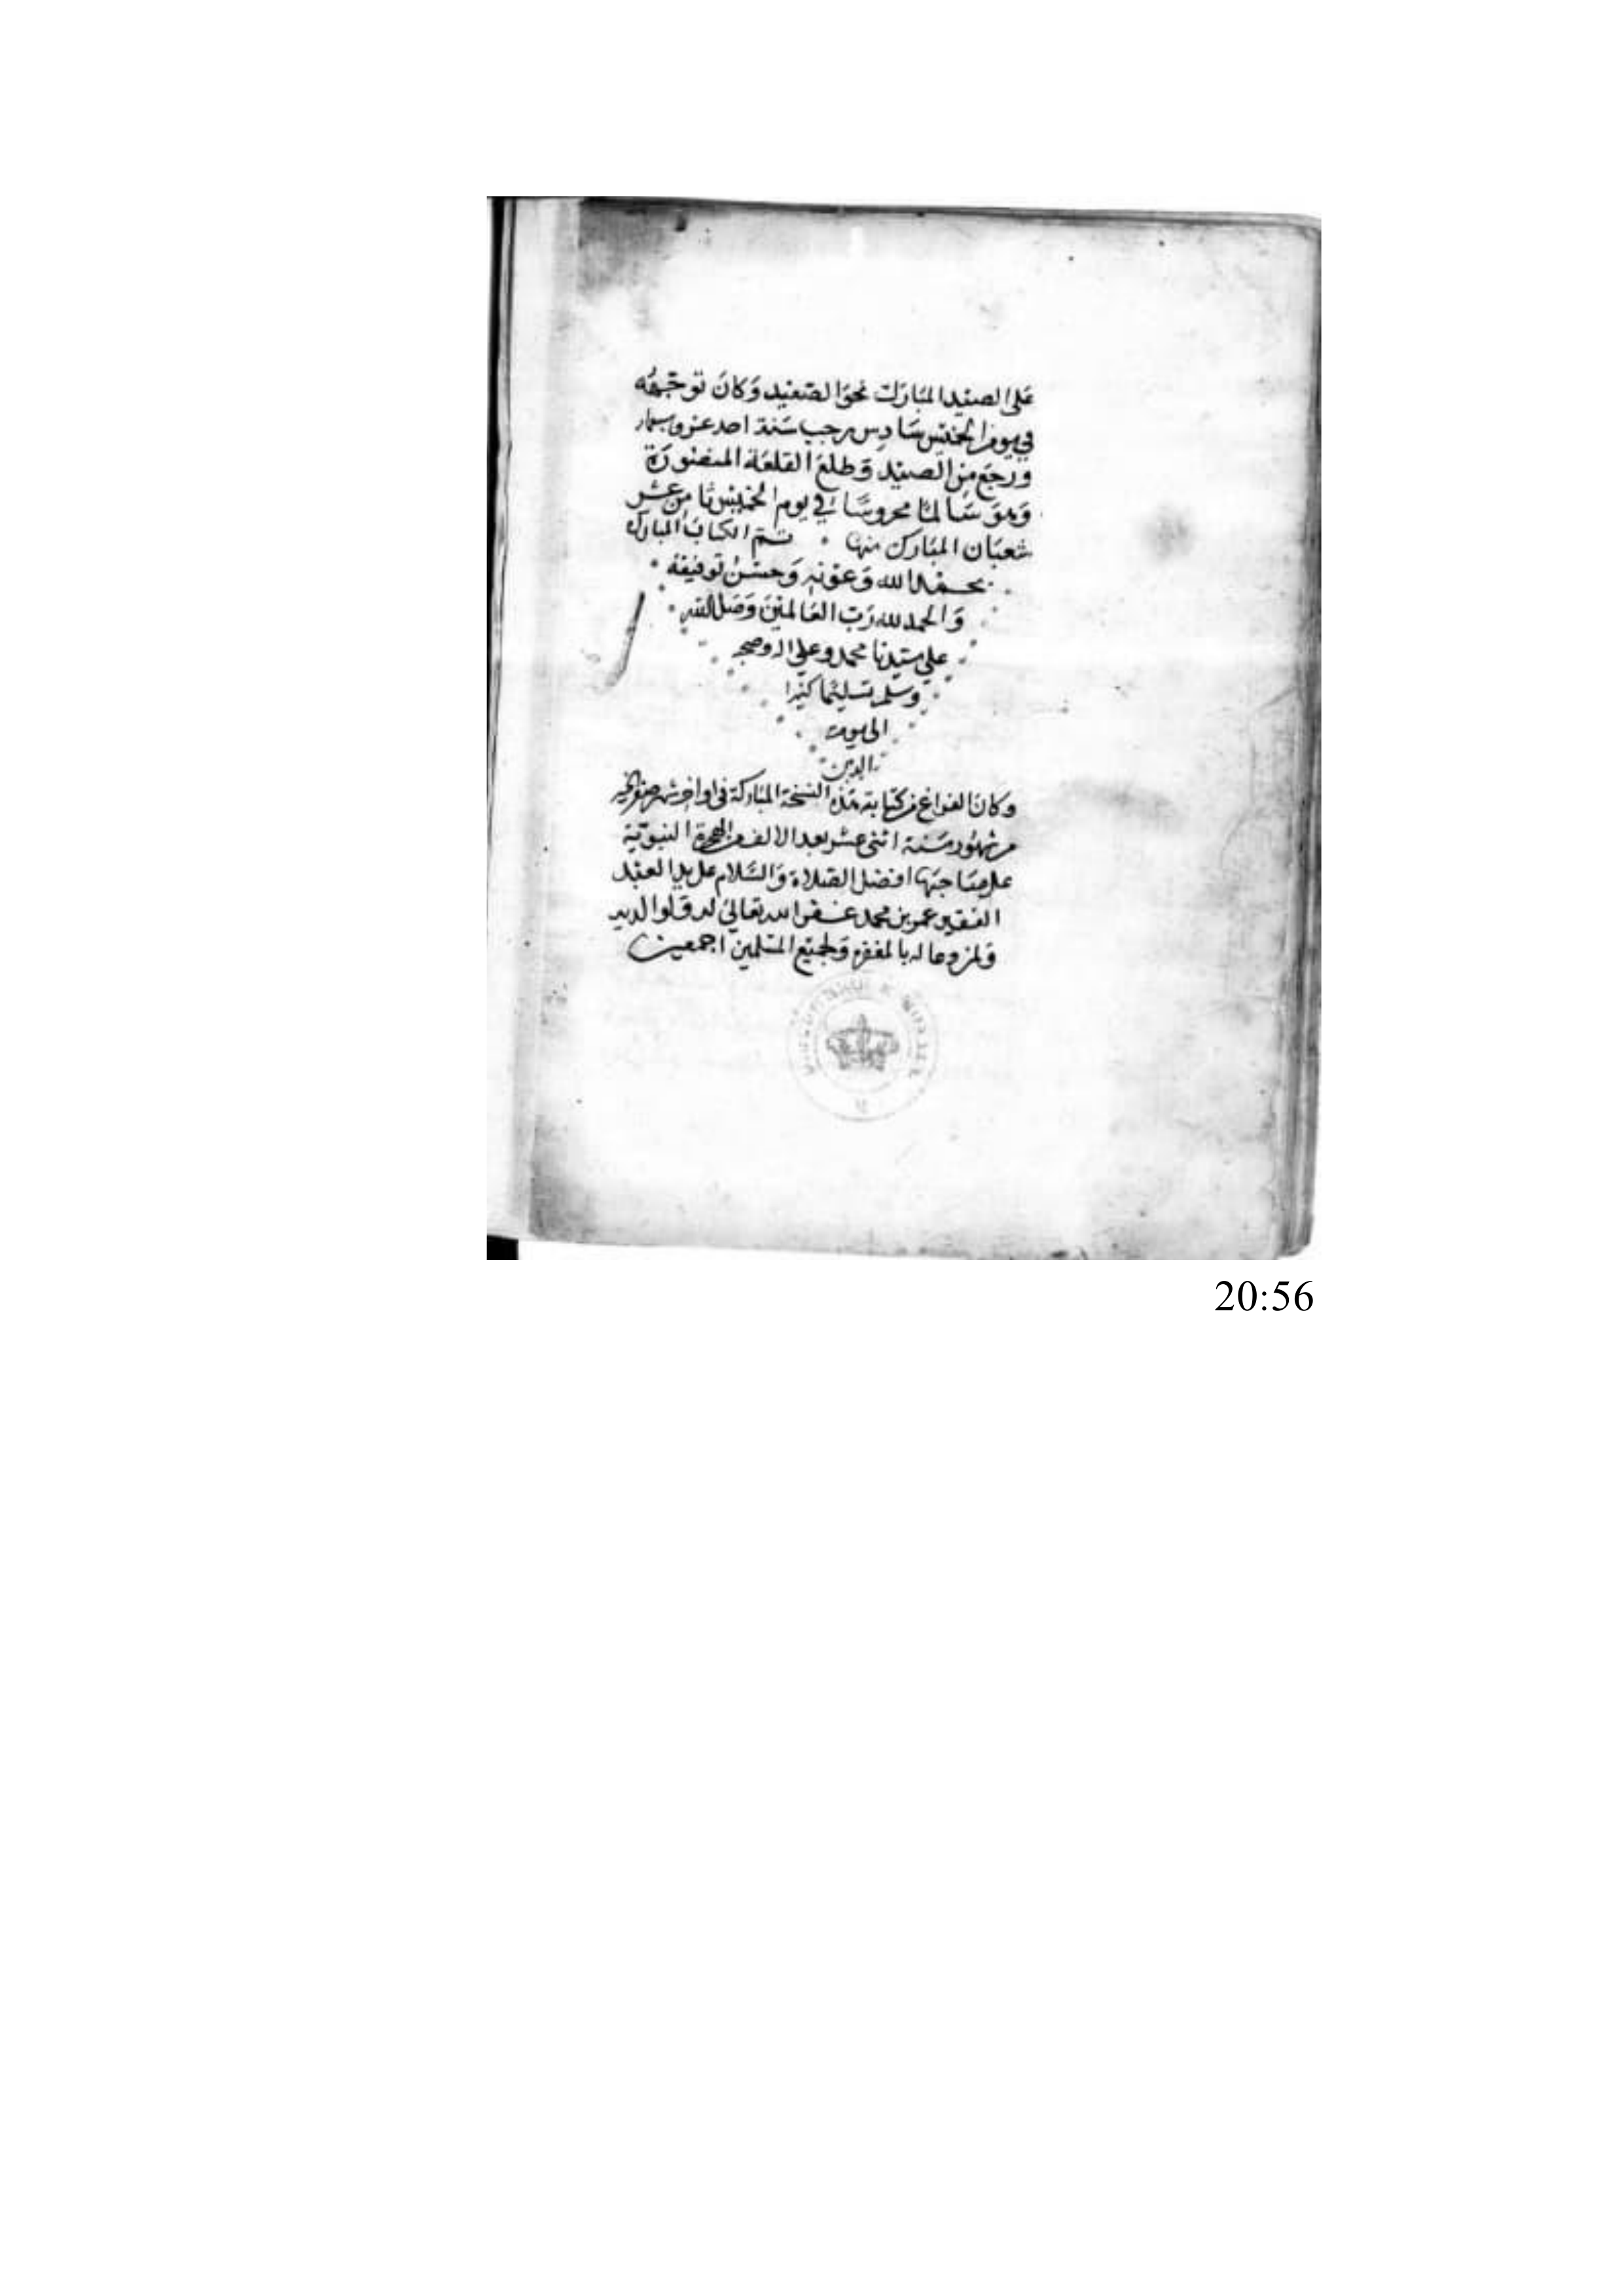 على الصيد المبارك نحو الصعيد وكان توجهه
في يوم الخميس سادس رجب سنة احد عشر وسبعماية
ورجع من الصيد وطلع القلعة المنصورة
وهو سالما محروسا في يوم الخميس ثامن عشر
شعبان المبارك منها تم الكتاب المبارك
بحمد الله وعونه وحسن توفيقه
والحمد لله رب العالمين وصلى الله
على سيدنا محمد وعلى اله وصحبه
وسلم تسليما كثيرا
الى يوم
الدين
وكان الفراغ من كتابة هذه النسخة المباركة في اواخر شهر صفر الخير
من شهور سنة اثنى عشر بعد الالف من الهجرة النبوية
على صاحبها افضل الصلاة والسلام على يد العبد
الفقير عمر بن محمد غفر الله تعالى له ولوالديه
ولمن دعا له بالمغفره ولجميع المسلمين اجمعين
20:56